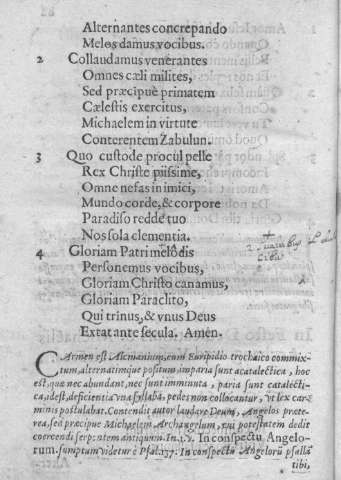 Alternantes concrepando
Melos damus vocibus.
2 Collaudamus venerantes
Omnes cæli milites,
Sed præcipuè primatem
Cælestis exercitus,
Michaelem in virtute
Conterentem Zabulun.
3 Quo custode procul pelle
Rex Christe piissime,
Omne nefas inimici,
Mundo corde, & corpore
Paradiso redde tuo
Nos sola clementia.
4 Gloriam Patri melodis
Personemus vocibus,
Gloriam Christo canamus,
Gloriam Paraclito,
Qui trinus, & vnus Deus
Extat ante secula. Amen.
CArmen est Alcmanium, cum Euripidio trochaico commix-
tum, alternatimque positum, imparia sunt acatalectica, hoc
est, quæ nec abundant, nec sunt imminuta, paria sunt catalecti-
ca, id est, deficientia vna syllaba, pedes non collocantur, vt lex car-
minis postulabat. Contendit autor laudare Deum, Angelos præte-
rea, sed præcipue Michaelem Archangelum, qui potestatem dedit
coercendi serpentem antiquum. In conspectu Angelo-
rum. sumptum videtur è Psal. 137. In conspectu Angelorũ psallã
tibi,